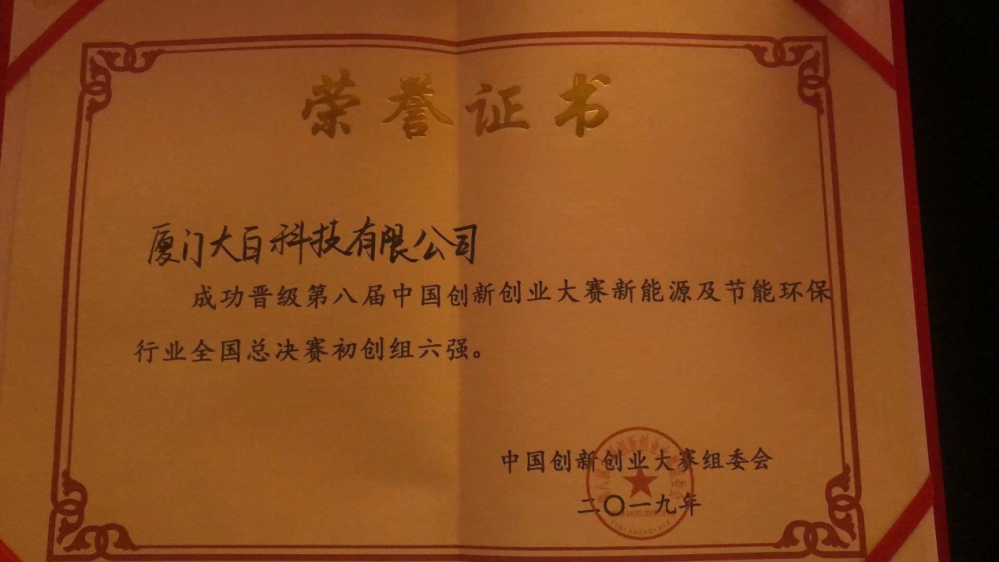 荣誉证书
厦门大百科技有限公司
成功晋级第八届中国创新创业大赛新能源及节能环保
行业全国总决赛初创组六强。
中国创新创业大赛组委会
二〇一九年